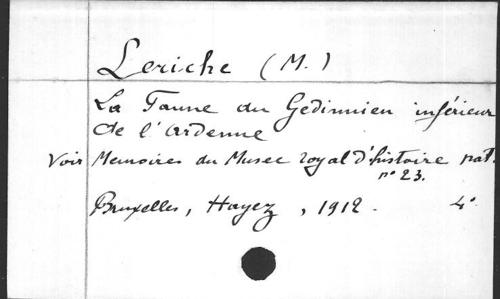 Leriche (M.)
La Faune du Gedinnien inférieur
de l'Ardenne
Voir Memoires du Musee royal d'histoire nat.
n° 23.
Bruxelles, Hayez, 1912. 4°